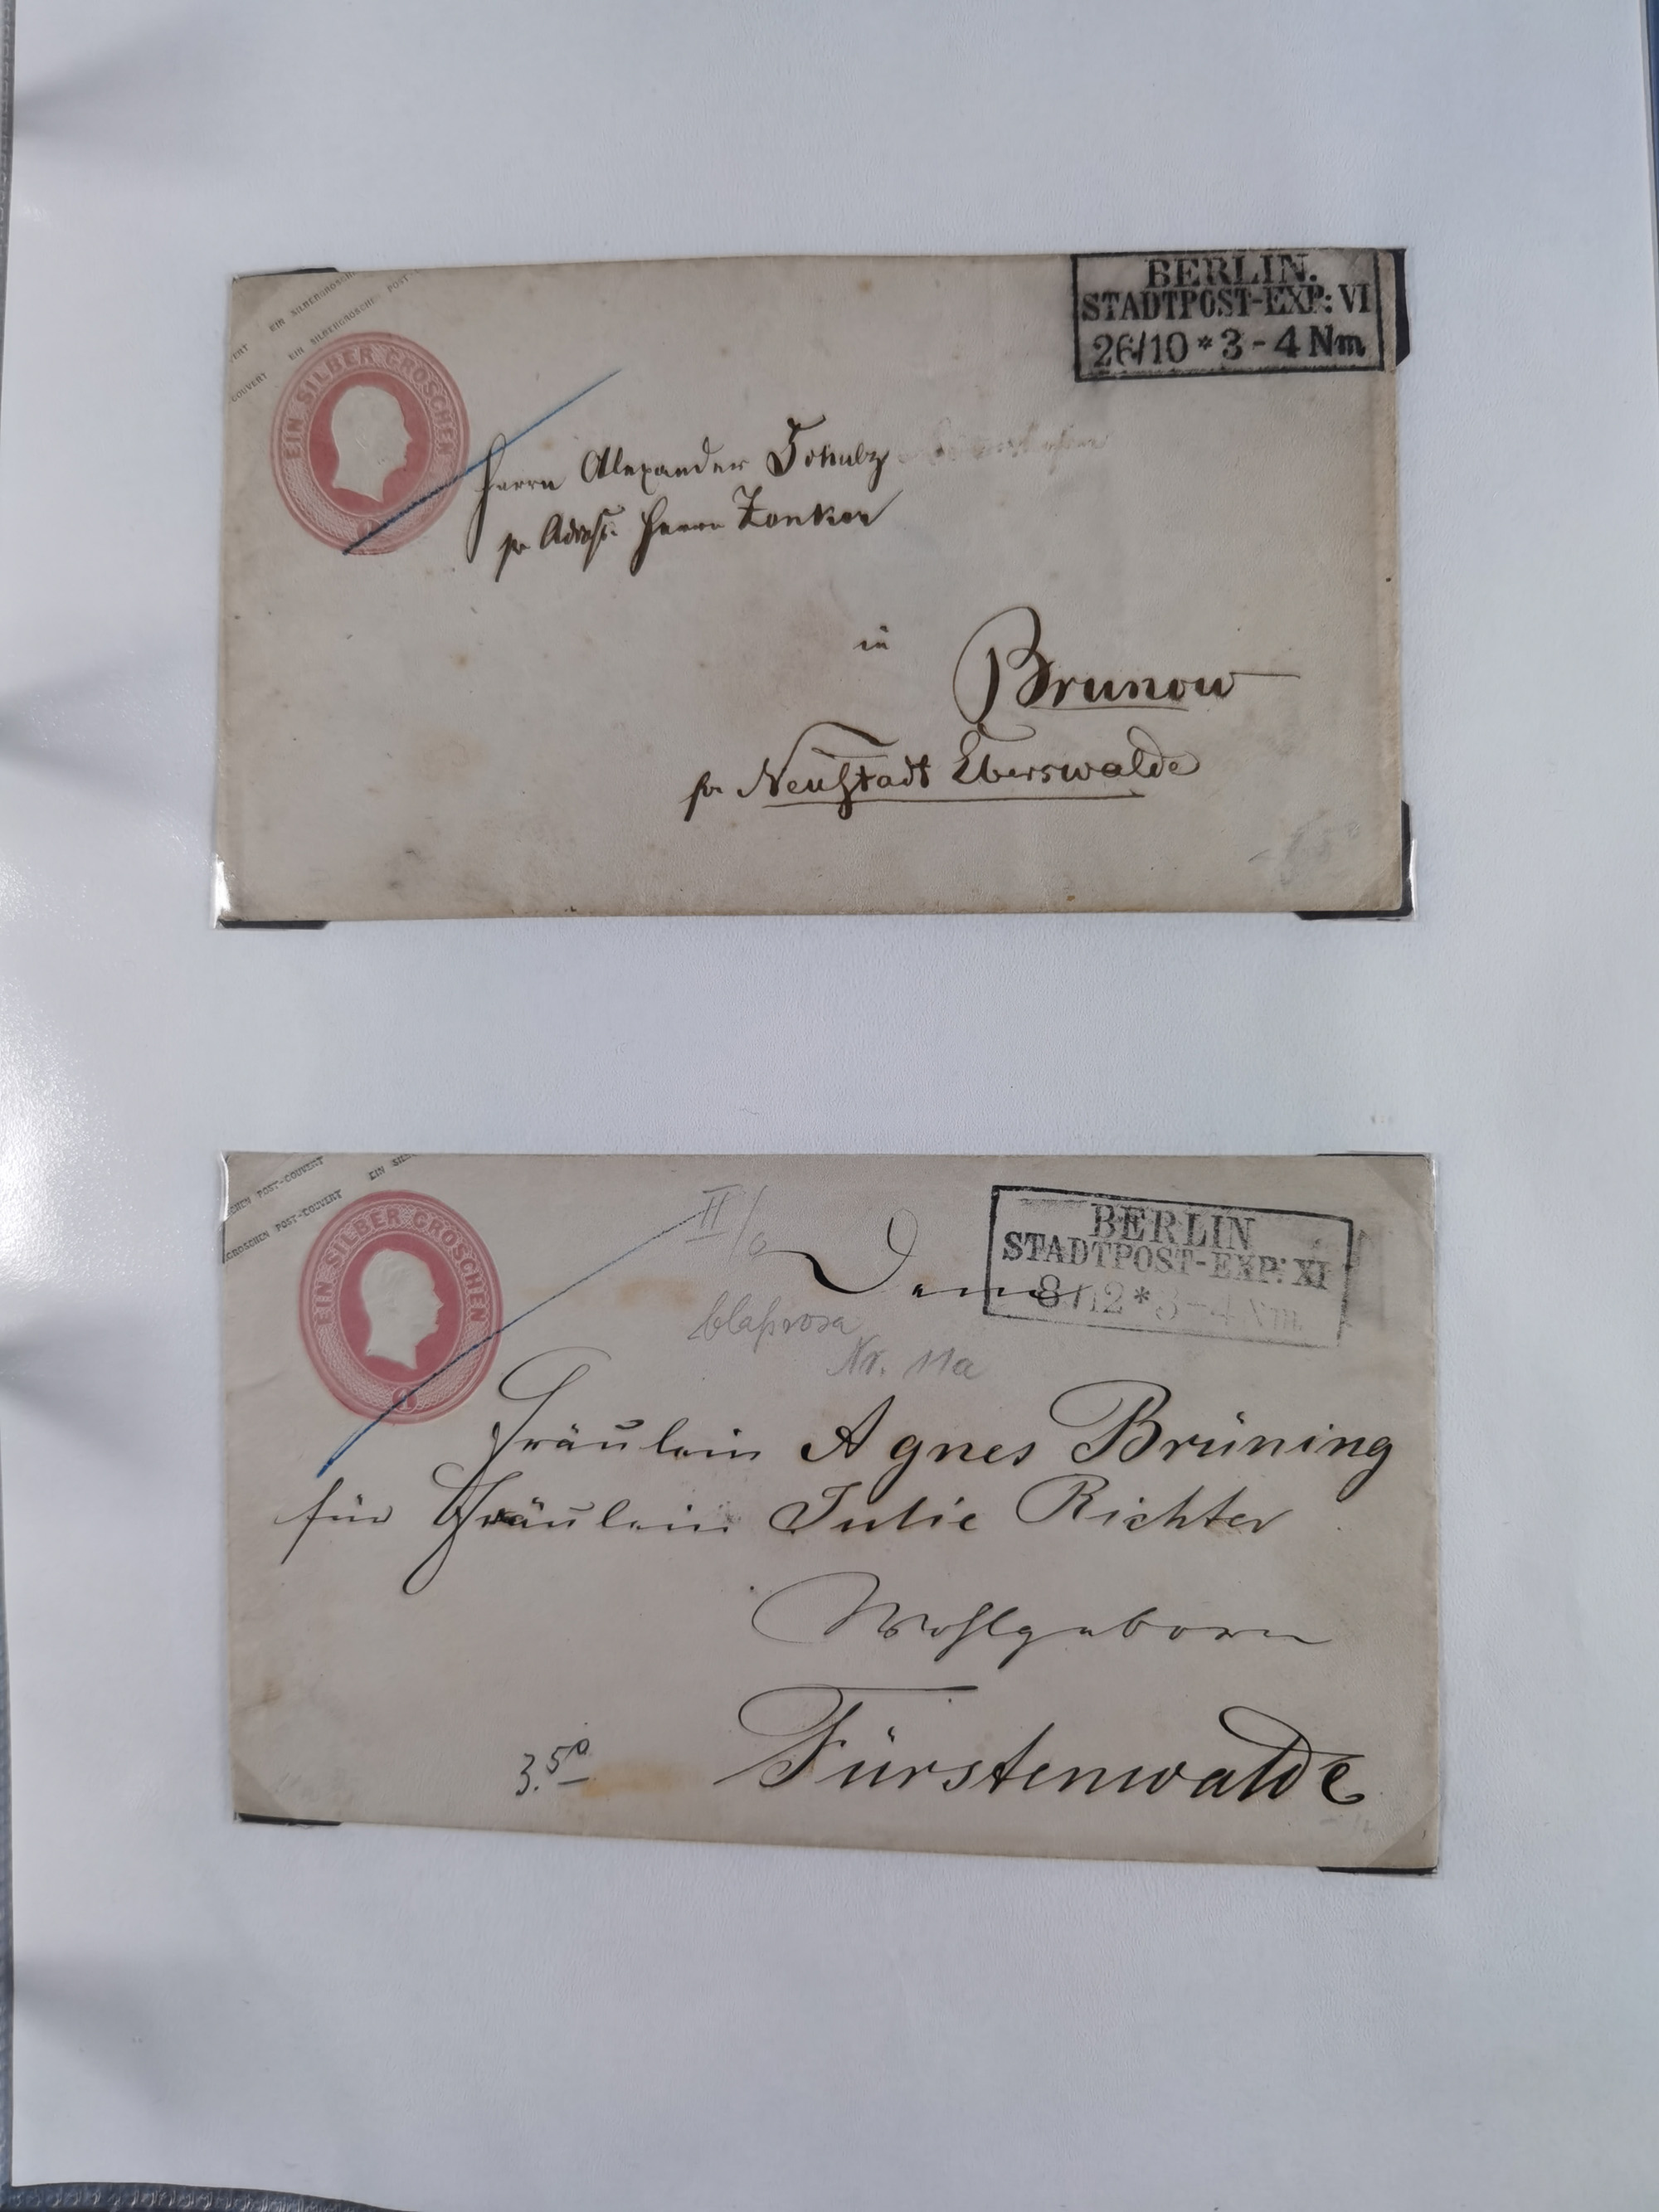 EIN SILBERGROSCH
VERT EIN SILBERGROSCHE POST
COUVERT
EIN SILBER GROSCHEN
BERLIN.
STADTPOST-EXP: VI
26/10 * 3-4 Nm
Herrn Alexander Schulz
pr Adress: Herrn
in
Brunow
pr Neustadt Eberswalde
CHEN POST-COUVERT EIN SIL
GROSCHEN POST-COUVERT
EIN SILBER GROSCHEN
1
II/a
BERLIN
STADTPOST-EXP: XI
8/12 * 3-4 Nm.
Dem
blaßrosa
Nr. 11a
Fräulein Agnes Brüning
für Fräulein Julie Richter
Wohlgeboren
Fürstenwalde
3.50